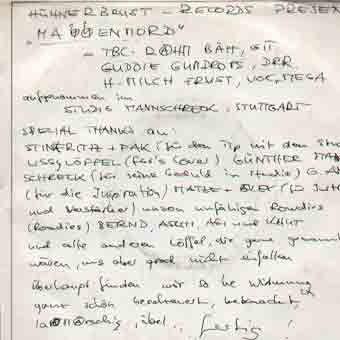 HÜHNERBRUST - RECORDS PRESEN
"MASSENMORD"
- TBC. RAHM BAM, GIT
GUDDIE GUMDROPS, DRR
H-MILCH ERNST, VOC, MEGA
aufgenommen im
STUDIO MANNSCHRECK, STUTTGART
SPEZIAL THANKS an:
+ PAK (für den Tip mit dem Stu
LISSY LÖFFEL (for's Cover) GÜNTHER MAN
SCHRECK (für seine Geduld im Studio) G.
(für die Inspiration) MATZE +
und Verstärker) unsern unfähigen Roadies
(Roadies) BERND, ASCHI, und KNUT
und alle anderen Löffel, die gern genannt
wären, uns aber grad nicht einfallen
überhaupt finden wir so ne Widmung
ganz schön bescheuert, beknackt,
übel.. fertig!